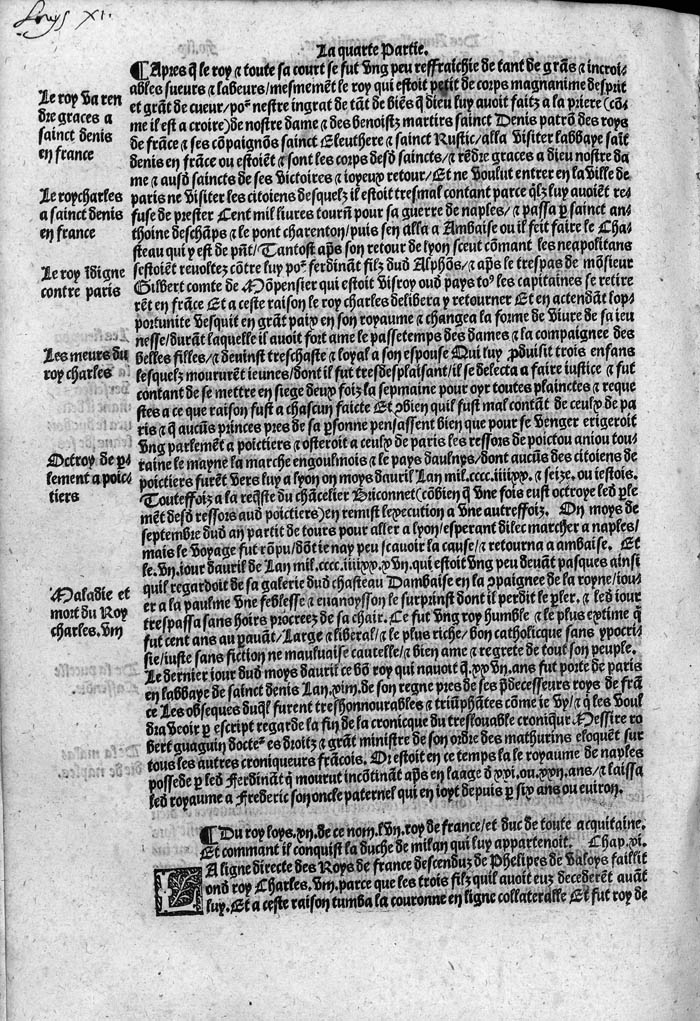 Loys XI.
La quarte Partie.
¶Apres q̃ le roy ⁊ toute sa court se fut vng peu reffraichie de tant de grãs ⁊ incroi⸗
ables sueurs ⁊ labeurs/mesmemẽt le roy qui estoit petit de corps magnanime desprit
et grãt de cueur/po᷑ nestre ingrat de tãt de biẽs q̃ dieu luy auoit faitz a la priere (cõ⸗
me il est a croire) de nostre dame ⁊ des benoistz martirs sainct Denis patrõ des roys
de frãce ⁊ ses cõpaignõs sainct Eleuthere ⁊ sainct Rustic/alla visiter labbaye saīt
denis en frãce ou estoiẽt ⁊ sont les corps desd̃ saincts/⁊ rẽdre graces a dieu nostre da
me ⁊ ausd̃ saincts de ses victoires ⁊ ioyeux retour/Et ne voulut entrer en la ville de
paris ne visiter les citoiens desquelz il estoit tresmal contant parce q̃lz luy auoiẽt re⸗
fuse de prester Cent mil liures tourñ pour sa guerre de naples/⁊ passa p̱ sainct an⸗
thoine deschãps ⁊ le pont charenton/puis sen alla a Ambaise ou il feit faire le Cha⸗
steau qui y est de pñt/Tantost aps̃ son retour de lyon sceut cõmant les neapolitans
sestoiẽt reuoltez cõtre luy po᷑ ferdinãt filz dud̃ Alphõs/⁊ aps̃ le trespas de mõsieur
Gilbert comte de Mõpensier qui estoit visroy oud̃ pays toꝰ les capitaines se retire
rẽt en frãce Et a ceste raison le roy charles delibera y retourner Et en actendãt lop⸗
portunite vesquit en grãt paix en son royaume ⁊ changea la forme de viure de sa ieu
nesse/durãt laquelle il auoit fort ame le passetemps des dames ⁊ la compaignee des
belles filles/⁊ deuinst treschaste ⁊ loyal a son espouse Qui luy ꝓduisit trois enfans
lesquelz moururẽt ieunes/dont il fut tresdesplaisant/il se delecta a faire iustice ⁊ fut
contant de se mettre en siege deux foiz la sepmaine pour oyr toutes plainctes ⁊ reque
stes a ce que raison fust a chascun faicte Et ꝯbien quil fust mal contãt de ceulx de pa
ris ⁊ q̃ aucũs princes pres de sa ꝑsonne pensassent bien que pour se venger erigeroit
vng parlemẽt a poictiers ⁊ osteroit a ceulx de paris les ressors de poictou aniou tou⸗
raine le mayne la marche engoulmois ⁊ le pays daulnys/dont aucũs des citoiens de
poictiers furẽt vers luy a lyon on moys dauril Lan mil.cccc.iiiixx.⁊ seize. ou iestois.
Touteffoiz a la reqs̃te du chãcelier Briconnet (cõbien q̃ vne fois eust octroye led̃ ꝑle
mẽt desd̃ ressors aud̃ poictiers) en remist lexecution a vne autreffoiz. On moys de
septembre dud̃ an partit de tours pour aller a lyon/esperant dilec marcher a naples/
mais le voyage fut rõpu/dõt ie nay peu scauoir la cause/⁊ retourna a ambaise. Et
le.vii.iour dauril de Lan mil.cccc.iiiixx.xvii.qui estoit vng peu deuãt pasques ainsi
quil regardoit de sa galerie dud̃ chasteau Dambaise en la ꝯpaignee de la royne/iou⸗
er a la paulme vne feblesse ⁊ euanoysson le surprinst dont il perdit le ꝑler. ⁊ led̃ iour
trespassa sans hoirs procreez de sa chair. Ce fut vng roy humble ⁊ le plus extime q̃
fut cent ans au pauãt/Large ⁊ liberal/⁊ le plus riche/bon catholicque sans ypocri⸗
sie/iuste sans fiction ne mauluaise cautelle/⁊ bien ame ⁊ regrete de tout son peuple.
Le dernier iour dud̃ moys dauril ce bõ roy qui nauoit q̃.xxvii.ans fut porte de paris
en labbaye de sainct denis Lan.xiiii.de son regne pres de ses p̃decesseurs roys de frã
ce Les obseques duq̃l furent treshonnourables ⁊ triũphãtes cõme ie vy/⁊ q̃ les voul
dra veoir ꝑ escript regarde la fin de la cronicque du treslouable croniqur̃ Messire ro
bert guaguin docte᷑ es droitz ⁊ grãt ministre de son ordre des mathurins eloquẽt sur
tous les autres croniqueurs frãcois. Or estoit en ce temps la le royaume de naples
possede ꝑ led̃ Ferdinãt q̃ mourut incõtinãt aps̃ en laage d̃ xxvi.ou.xxvii.ans/⁊ laissa
led̃ royaume a Frederic son oncle paternel qui en ioyt depuis ꝑ six ans ou euiron.
¶Du roy loys.xii.de ce nom.lvii.roy de france/et duc de toute acquitaine.
Et commant il conquist la duche de milan qui luy appartenoit. Chap.vi.
LA ligne directe des Roys de france descenduz de Phelipes de Valoys faillit
ond̃ roy Charles.viii.parce que les trois filz quil auoit euz decederẽt auãt
luy. Et a ceste raison tumba la couronne en ligne collateralle Et fut roy de
Le roy va ren
dre graces a
sainct denis
en france
Le roy charles
a sainct denis
en france
Le roy īdigne
contre paris
Les meurs du
roy charles
Octroy de ꝑ⸗
lement a poic⸗
tiers
Maladie et
mort du Roy
charles.viii